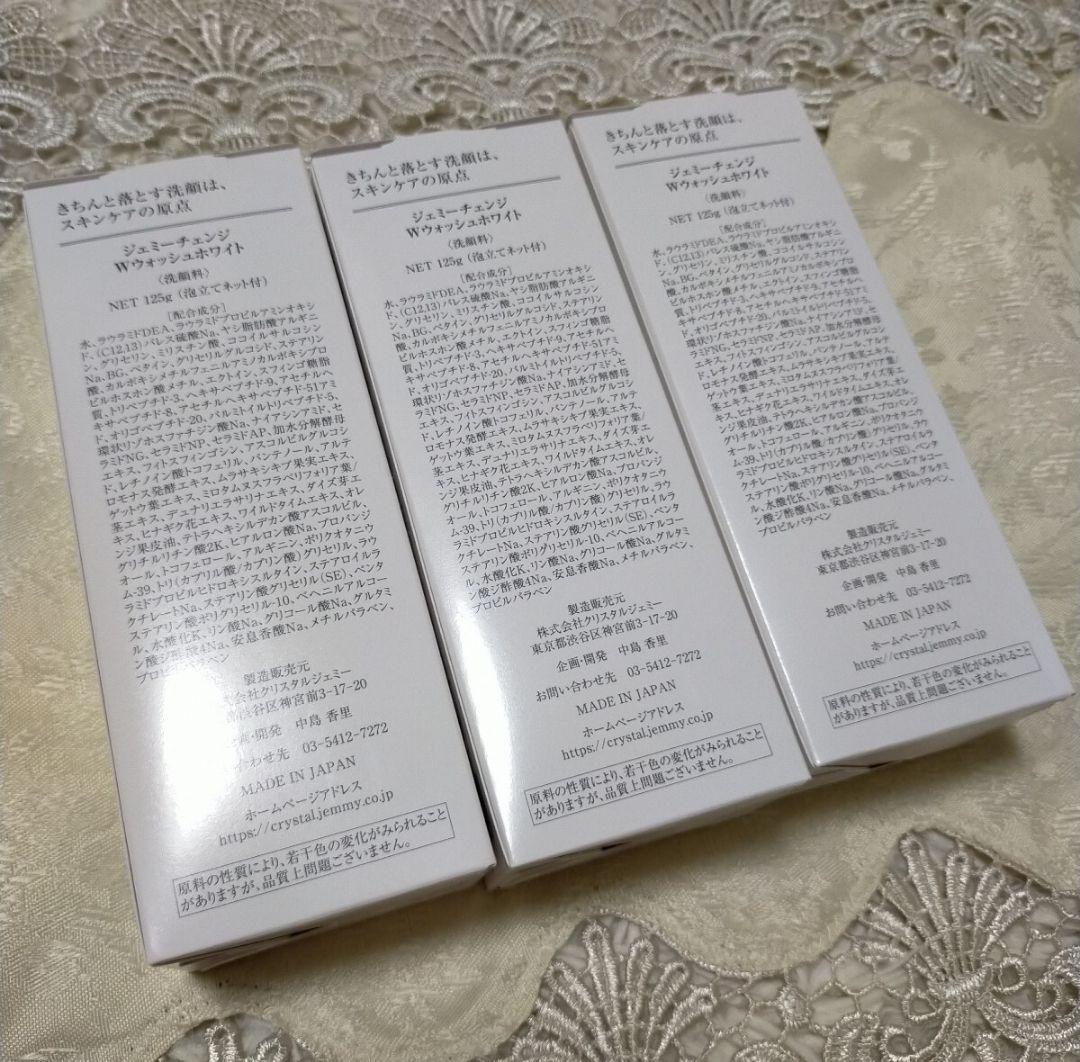 きちんと落とす洗顔は、
スキンケアの原点
ジェミーチェンジ
Wウォッシュホワイト
〈洗顔料〉
NET 125g (泡立てネット付)
[配合成分]
水、ラウラミドDEA、ラウラミドプロピルアミンオキシ
ド、(C12,13)パレス硫酸Na、ヤシ脂肪酸アルギニ
ン、グリセリン、ミリスチン酸、ココイルサルコシン
Na、BG、ベタイン、グリセリルグルコシド、ステアリン
酸、カルボキシメチルフェニルアミノカルボキシプロ
ピルホスホン酸メチル、エクトイン、スフィンゴ糖脂
質、トリペプチド-3、ヘキサペプチド-9、アセチルヘ
キサペプチド-8、アセチルヘキサペプチド-51アミ
ド、オリゴペプチド-20、パルミトイルトリペプチド-5、
環状リノホスファチジン酸Na、ナイアシンアミド、セ
ラミドNG、セラミドNP、セラミドAP、加水分解酵母
エキス、フィトスフィンゴシン、アスコルビルグルコシ
ド、レチノイン酸トコフェリル、パンテノール、アルテ
ロモナス発酵エキス、ムラサキシキブ果実エキス、
ゲットウ葉エキス、ミロタムヌスフラベリフォリア葉/
茎エキス、デュナリエラサリナエキス、ダイズ芽エ
キス、ヒナギク花エキス、ワイルドタイムエキス、オレ
ンジ果皮油、テトラヘキシルデカン酸アスコルビル、
グリチルリチン酸2K、ヒアルロン酸Na、プロパンジ
オール、トコフェロール、アルギニン、ポリクオタニウ
ム-39、トリ(カプリル酸/カプリン酸)グリセリル、ラウ
ラミドプロピルヒドロキシスルタイン、ステアロイルラ
クチレートNa、ステアリン酸グリセリル(SE)、ペンタ
ステアリン酸ポリグリセリル-10、ベヘニルアルコー
ル、水酸化K、リン酸Na、グリコール酸Na、グルタミ
ン酸ジ酢酸4Na、安息香酸Na、メチルパラベン、
プロピルパラベン
製造販売元
株式会社クリスタルジェミー
渋谷区神宮前3-17-20
企画・開発 中島 香里
お問い合わせ先 03-5412-7272
MADE IN JAPAN
ホームページアドレス
https://crystal.jemmy.co.jp
原料の性質により、若干色の変化がみられること
がありますが、品質上問題ございません。
きちんと落とす洗顔は、
スキンケアの原点
ジェミーチェンジ
Wウォッシュホワイト
〈洗顔料〉
NET 125g (泡立てネット付)
[配合成分]
水、ラウラミドDEA、ラウラミドプロピルアミンオキシ
ド、(C12,13)パレス硫酸Na、ヤシ脂肪酸アルギニ
ン、グリセリン、ミリスチン酸、ココイルサルコシン
Na、BG、ベタイン、グリセリルグルコシド、ステアリン
酸、カルボキシメチルフェニルアミノカルボキシプロ
ピルホスホン酸メチル、エクトイン、スフィンゴ糖脂
質、トリペプチド-3、ヘキサペプチド-9、アセチルヘ
キサペプチド-8、アセチルヘキサペプチド-51アミ
ド、オリゴペプチド-20、パルミトイルトリペプチド-5、
環状リノホスファチジン酸Na、ナイアシンアミド、セ
ラミドNG、セラミドNP、セラミドAP、加水分解酵母
エキス、フィトスフィンゴシン、アスコルビルグルコシ
ド、レチノイン酸トコフェリル、パンテノール、アルテ
ロモナス発酵エキス、ムラサキシキブ果実エキス、
ゲットウ葉エキス、ミロタムヌスフラベリフォリア葉/
茎エキス、デュナリエラサリナエキス、ダイズ芽エ
キス、ヒナギク花エキス、ワイルドタイムエキス、オレ
ンジ果皮油、テトラヘキシルデカン酸アスコルビル、
グリチルリチン酸2K、ヒアルロン酸Na、プロパンジ
オール、トコフェロール、アルギニン、ポリクオタニウ
ム-39、トリ(カプリル酸/カプリン酸)グリセリル、ラウ
ラミドプロピルヒドロキシスルタイン、ステアロイルラ
クチレートNa、ステアリン酸グリセリル(SE)、ペンタ
ステアリン酸ポリグリセリル-10、ベヘニルアルコー
ル、水酸化K、リン酸Na、グリコール酸Na、グルタミ
ン酸ジ酢酸4Na、安息香酸Na、メチルパラベン、
プロピルパラベン
製造販売元
株式会社クリスタルジェミー
東京都渋谷区神宮前3-17-20
企画・開発 中島 香里
お問い合わせ先 03-5412-7272
MADE IN JAPAN
ホームページアドレス
https://crystal.jemmy.co.jp
原料の性質により、若干色の変化がみられること
がありますが、品質上問題ございません。
きちんと落とす洗顔は、
スキンケアの原点
ジェミーチェンジ
Wウォッシュホワイト
〈洗顔料〉
NET 125g (泡立てネット付)
[配合成分]
水、ラウラミドDEA、ラウラミドプロピルアミンオキシ
ド、(C12,13)パレス硫酸Na、ヤシ脂肪酸アルギニ
ン、グリセリン、ミリスチン酸、ココイルサルコシン
Na、BG、ベタイン、グリセリルグルコシド、ステアリン
酸、カルボキシメチルフェニルアミノカルボキシプロ
ピルホスホン酸メチル、エクトイン、スフィンゴ糖脂
質、トリペプチド-3、ヘキサペプチド-9、アセチルヘ
キサペプチド-8、アセチルヘキサペプチド-51アミ
ド、オリゴペプチド-20、パルミトイルトリペプチド-5、
環状リノホスファチジン酸Na、ナイアシンアミド、セ
ラミドNG、セラミドNP、セラミドAP、加水分解酵母
エキス、フィトスフィンゴシン、アスコルビルグルコシ
ド、レチノイン酸トコフェリル、パンテノール、アルテ
ロモナス発酵エキス、ムラサキシキブ果実エキス、
ゲットウ葉エキス、ミロタムヌスフラベリフォリア葉/
茎エキス、デュナリエラサリナエキス、ダイズ芽エ
キス、ヒナギク花エキス、ワイルドタイムエキス、オレ
ンジ果皮油、テトラヘキシルデカン酸アスコルビル、
グリチルリチン酸2K、ヒアルロン酸Na、プロパンジ
オール、トコフェロール、アルギニン、ポリクオタニウ
ム-39、トリ(カプリル酸/カプリン酸)グリセリル、ラウ
ラミドプロピルヒドロキシスルタイン、ステアロイルラ
クチレートNa、ステアリン酸グリセリル(SE)、ペンタ
ステアリン酸ポリグリセリル-10、ベヘニルアルコー
ル、水酸化K、リン酸Na、グリコール酸Na、グルタミ
ン酸ジ酢酸4Na、安息香酸Na、メチルパラベン、
プロピルパラベン
製造販売元
株式会社クリスタルジェミー
東京都渋谷区神宮前3-17-20
企画・開発 中島 香里
お問い合わせ先 03-5412-7272
MADE IN JAPAN
ホームページアドレス
https://crystal.jemmy.co.jp
原料の性質により、若干色の変化がみられること
がありますが、品質上問題ございません。